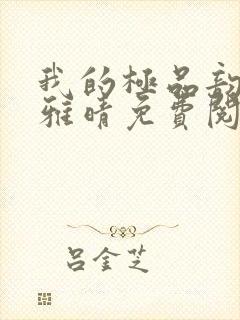 我的极品
雅晴免费阅
吕金芝